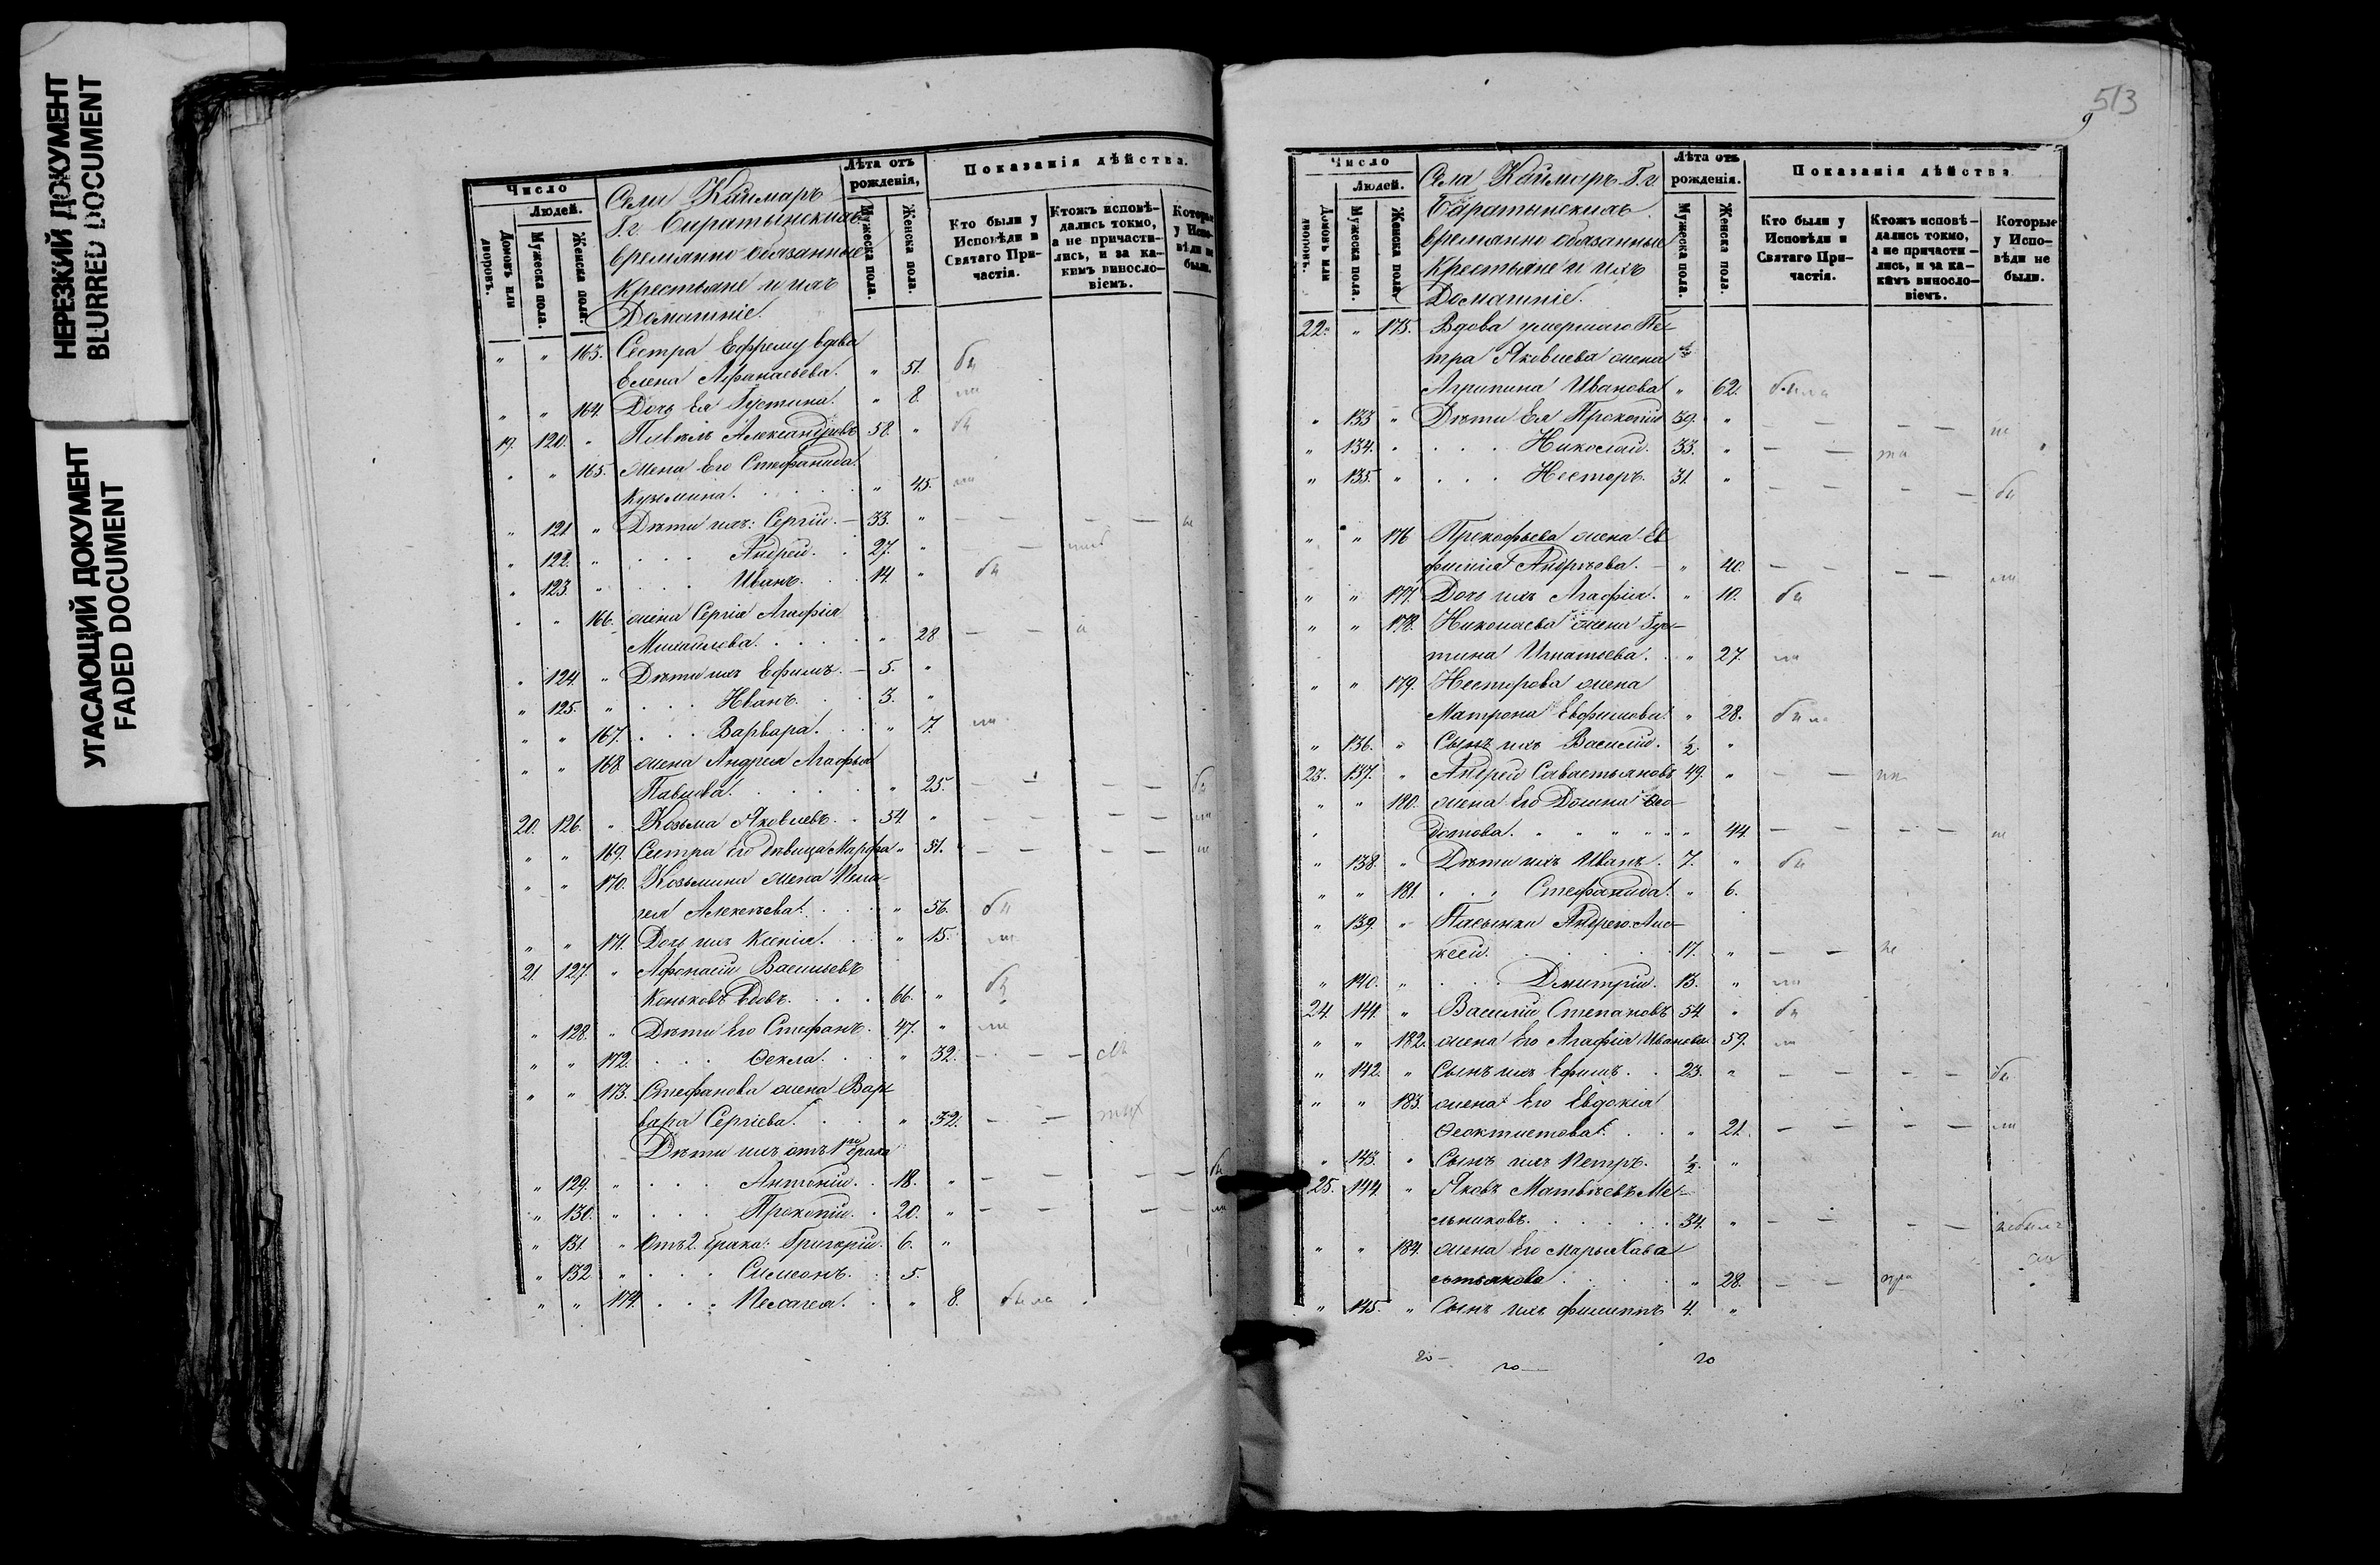 НЕРЕЗКИЙ ДОКУМЕНТ
BLURRED DOCUMENT
УГАСАЮЩИЙ ДОКУМЕНТ
FADED DOCUMENT
Число
Людей.
Домовъ или дворовъ.
Мужеска пола.
Женска пола.
Села Каймаръ
Гг. Баратынскихъ
временно обязанные
Крестьяне и ихъ
Домашніе.
Лѣта отъ рожденія,
Мужеска пола.
Женска пола.
Показанія дѣйства.
Кто были у Исповѣди и Святаго Причастія.
Ктожъ исповѣдались токмо, а не причастились, и за какимъ винословіемъ.
Которые у Исповѣди не были.
" " 163. Сестра Ефрему вдова
Елена Афанасьева. " 51.
" " 164. Дочь Ея Густина. " 8.
19. 120. " Павелъ Александровъ 58. "
" " 165. Жена Его Стефанида
Кузьмина. " 45.
" 121 " Дѣти ихъ: Сергій. 33. "
" 122. " Андрей. 27. "
" 123 " Иванъ. 14 "
" " 166. жена Сергія Агафія
Михайлова. " 28
" 124. " Дѣти ихъ Ефимъ. 5. "
" 125. " Иванъ. 3. "
" " 167. Варвара. " 7.
" " 168 жена Андрея Агафья
Павлова. " 25.
20. 126. " Козьма Яковлевъ. 54 "
" " 169. Сестра Его дѣвица Марфа " 51.
" " 170. Козьмина жена Пела-
гея Алексѣева. " 56.
" " 171. Дочь ихъ Ксенія. " 15.
21. 127. " Афонасій Васильевъ
Коньковъ вдовъ. 66. "
" 128. " Дѣти Его Стефанъ. 47. "
" " 172. Ѳекла. " 32.
" " 173. Стефанова жена Вар-
вара Сергіева. " 32.
Дѣти ихъ отъ 1го брака
" 129. " Антоній. 18. "
" 130. " Прокопій. 20. "
" 131 " Отъ 2. брака: Григорій. 6. "
" 132 " Симеонъ. 5.
" " 174. Пелагея. " 8. была
513
9
Число
Людей.
Домовъ или дворовъ.
Мужеска пола.
Женска пола.
Села Каймаръ Гг.
Баратынскихъ
временно обязанные
Крестьяне и ихъ
Домашніе.
Лѣта отъ рожденія.
Мужеска пола.
Женска пола.
Показанія дѣйства
Кто были у Исповѣди и Святаго Причастія.
Ктожъ исповѣдались токмо, а не причастились, и за какимъ винословіемъ.
Которые у Исповѣди не были.
22. " 175. Вдова умершаго Пе-
тра Яковлева жена
Агрипина Иванова " 62. была
" 133 " Дѣти Ея Прокопій 39. "
" 134. " Николай. 33. "
" 135. " Несторъ. 31. "
" " 176 Прокофьева жена Ев-
фимія Андрѣева. " 40.
" " 177. Дочь ихъ Агафія. " 10.
" " 178. Николаева жена Гус-
тина Игнатьева. " 27.
" " 179. Несторова жена
Матрона Евфимова. " 28.
" 136. " Сынъ ихъ Василій. 1/2 "
23. 137. " Андрей Савастьяновъ 49. "
" " 180. жена Его Домна Ѳео-
дотова. " 44.
" 138. " Дѣти ихъ Иванъ. 7. "
" " 181. Стефанида. " 6.
" 139. " Пасынки Андрею Але-
ксей. 17. "
" 140. " Дмитрій. 13. "
24. 141. " Василій Степановъ 54 "
" " 182. жена Его Агафія Иванова 59.
" 142. " Сынъ ихъ Ефимъ. 23. "
" " 183. жена Его Евдокія
Ѳеоктистова. " 21.
" 143. " Сынъ ихъ Петръ. 1/2. "
25. 144. " Яковъ Матвѣевъ Ме-
льниковъ. 34. "
" " 184. жена Его Марья Сава
стьянова " 28.
" 145. " Сынъ ихъ Филиппъ 4. "